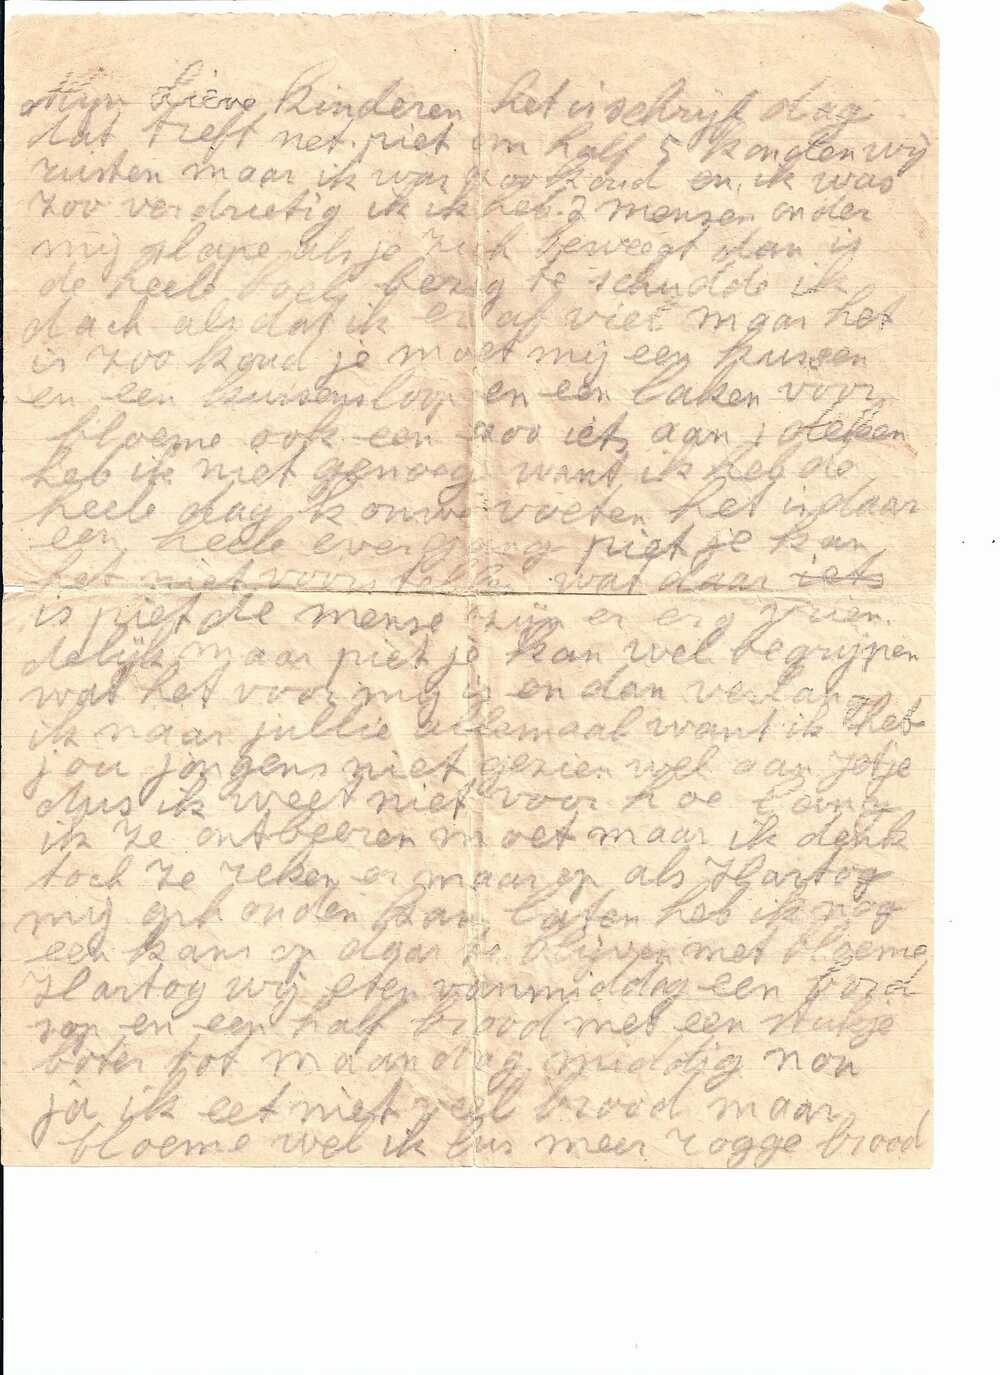 Mijn Lieve Kinderen het is schrijf dag
dat treft net. piet om half 5 konden wij
rusten maar ik war zoo koud en ik was
zoo verdrietig ik ik heb 2 mensen onder
mij slape als je zich beweegt dan is
de heele boel bezig te schudde ik
dach als dat ik er af viel maar het
is zoo koud je moet mij een kussen
en een kussensloop en een laken voor
bloeme ook een zoo iets aan 1 deken
heb ik niet genoeg want ik heb de
heele dag kouwe voeten het is daar
een heele overgang piet je kan
het niet voorstelle wat daar iets
is piet de mense zijn er erg vrien
delijk maar piet je kan wel begrijpen
wat het voor mij is en dan verlang
ik naar jullie allemaal want ik heb
jou jongens niet gezien wel aan Jetje
dus ik weet niet voor hoe lang
ik ze ontbeeren moet maar ik denk
toch ze reken er maar op als Hartog
mij ophouden kan laten heb ik nog
een kans op daar te blijven met bloeme
Hartog wij eten vanmiddag een bord
sop en een half brood met een stukje
boter tot maandag middig nou
ja ik eet niet veel brood maar
bloeme wel ik lus meer rogge brood